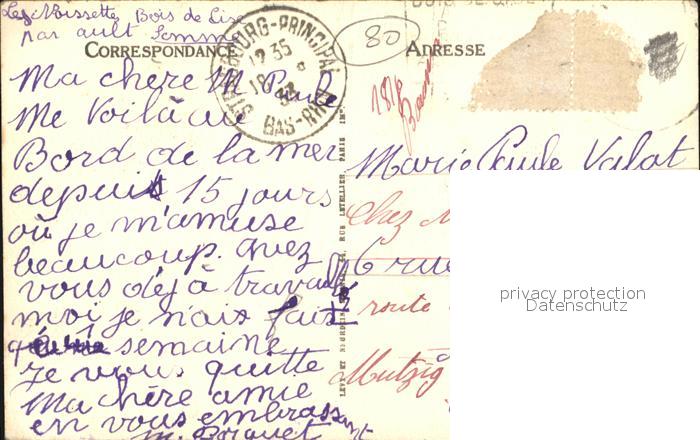 Les Missette, Bois de Cise
par ault Somme
CORRESPONDANCE
ADRESSE
80
STRASBOURG-PRINCIPAL
BAS-RHIN
Ma chère M Paule
Me voilà au
Bord de la mer
depuis 15 jours
où je m'amuse
beaucoup. avez
vous déjà travaillé
moi je n'ais fais
semaine
Je vous quitte
Ma chère amie
en vous embrassant
LEVY ET NEURDEIN RÉUNIS, 44, RUE LETELLIER, PARIS IMP.
Marie Paule Valot
Chez M
6 rue
route
Mutzig
privacy protection
Datenschutz